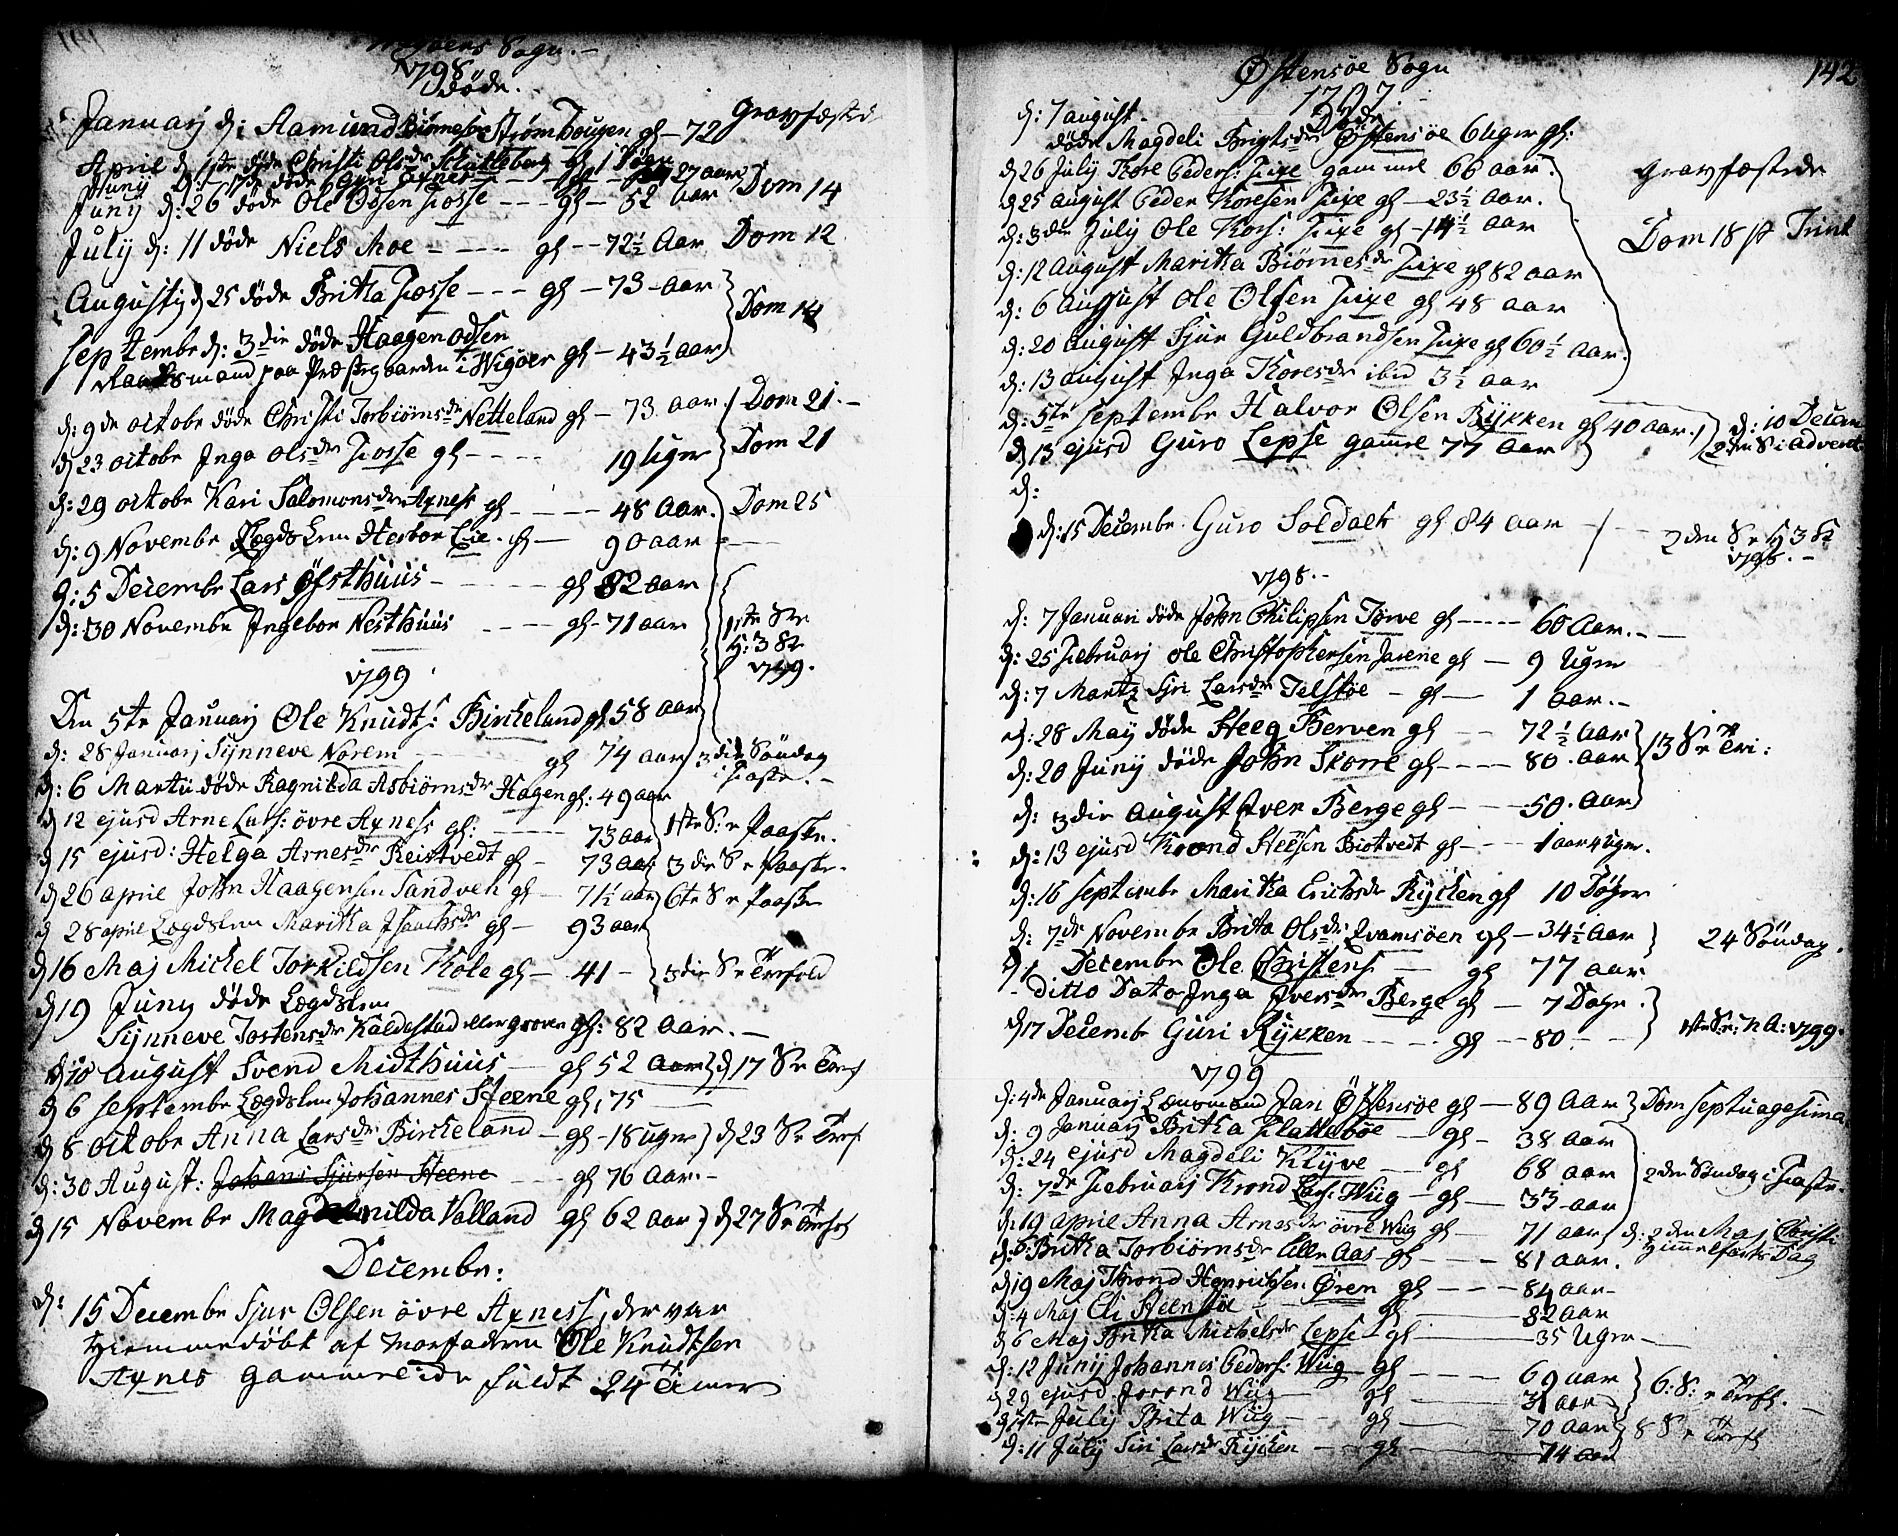 Sogn.
1798
døde.
Gravfæstede
Januarj d: Aamund Biørnesøn Strømhougen gl - 72
April d 1ste døde Christi Olsdr Flatteboe gl 1
Junij 27 aar
Junij d: 26 døde Ole Olsen Fosse --- gl - 52 aar Dom 14
July d: 11 døde Niels Moe ---- gl -- 72½ Aar Dom 12
Augustij d 25 døde Britta Fosse --- gl - 73 - Aar
Dom 14
Septembr d: 3die døde Haagen Odsen
paa Præstegaarden i Wigøer gl - 43½ aar
d: 9de octobr døde Christi Torbiørnsdr Netteland gl - 73 aar Dom 21.-
d 23 octobr Inga Olsdr Fosse gl --- 19 Uger Dom 21
d: 29 octobr Kari Salomonsdr Axness gl --- 48 Aar. Dom 25
d: 9 Novembr Lægdslem Herbor Lie. gl - 90 aar
d: 5 Decembr Lars Øfsthuus ---- gl 82 Aar
d: 30 Novembr Ingebor Nesthuus --- gl - 71 aar
1ste S e
H: 3 K
1799.
1799
Den 5te Januarj Ole Knudts: Birkeland gl 58 aar
d: 28 Januarj Synneve Norem gl 74 aar 3die Søndag
i Faste.-
d: 6 Martii døde Ragnilda Asbiørnsdr Hagen gl: 49 aar
d 12 ejusd Arne Lars: øvre Axness gl: --- 73 aar 1ste S: e Paaske.
d 15 ejusd: Helga Arnesdr Reistvedt gl - 73 aar 3die S e Paaske.
d 26 april John Haagensen Sandven gl - 71½ aar 6te S e Paaske
d 28 april Lægdslem Maritha Isaachsdr gl - 93 aar
d 16 Maj Michel Torkildsen Kole gl - 41 - 3die S e Trefold
d 19 Juny døde Lægdslem
Synneve Tostensdr Kaldestad eller Groven gl: 82 Aar.-
d 10 August Svend Midthuus - gl 52 aar d 17 S e Tref
d 6 Septembr Lægdslem Johannes Steene gl, 75
d 8 octobr Anna Larsdr Birkeland - gl - 18 uger d 23 S e Tref
d: 30 August: Johans Siursen Steene gl 76 Aar.-
d 15 Novembr Magnilda Valland gl 62 Aar d 27 S e Tref
Decembr:
d: 15 Decembr Sjur Olsen øvre Axness, der var
Hiemmedøbt af Morfaderen Ole Knudtsen
Axnes Gammel fuldt 24 Timer

Østensøe Sogn
142
1797
d: 7 august.
døde Magdeli Brigtsdr Østensøe 6 Uger gl:
Gravfæstede
d 26 July Kore Peders: Fixe gammel 66 aar.
d 25 august Peder Koresen Fixe gl - 23½ Aar.
d: 3die July Ole Kors: Fixe gl - 14½ aar
Dom 18 p Trinit
d: 12 August Maritha Biørnesdr Fixe gl 82 aar
d: 6 August Ole Olsen Fixe gl 48 aar
d: 20 August Sjur Guldbrandsen Fixe gl 60½ Aar.
d: 13 august Inga Koresdr ibid 3½ aar
d: 5te Septembr Halvor Olsen Rykken gl 40 aar. d: 10 Decem
d 13 ejusd Guro Lepse gamle 77 aar 2den S i Advent
d:
d: 15 Decembr Guro Soldalt gl 84 aar --- 2den S e H 3 K
1798.-
1798.-
d: 7 Januari døde John Philipsen Torve gl ---- 60 Aar.--
d: 25 Februarj Ole Christophersen gl - 9 Uger
d: 7 Martz Siri Larsdr Telstøe - gl - 1 Aar.-
d: 28 Maj døde Steeg Berven gl - 72½ Aar
13 S e Tri:
d: 20 Junij døde John Skorre gl --- 80. aar
d: 3die August Iver Berge gl --- 50. Aar
d: 13 ejusd Trond Steesen Biotvedt gl --- 1 aar 4 uger.
d: 16 Septembr Maritha Erichsdr Rykken gl 10 Døger
d: 7de Novembr Brita Olsdr Qvamsøen gl - 34½ Aar 24 Søndag.
d 1 Decembr Ole Christens gl 77 aar
ditto Dato Inga Iversdr Berge gl - 7 Dage.
d 17 Decemb Guri Rykken --- gl -- 80 -- 1ste S: e: n A: 1799.
1799
d: 4de Januarj Lænsmand Jan Østensøe gl - 89 Aar Dom Septuagesima
d: 9 Januarj Britha Flattebøe - gl - 38 aar
d: 24 ejusd Magdeli Klyve - gl 68 aar 2den Søndag i Faste.
d: 7de Februarj Trond Lars: Wiig - gl - 33 aar
d: 19 april Anna Arnesdr øvre Wiig gl - 71 aar d: 2den Maj Christi
Himmelfarts Dag
d: Britha Torbiørnsdr Lille Aas gl --- 81 aar.
d 19 Maj Trond Henrichsen Øren gl --- 84 aar-
d: 4 Maj Eli Steenstøe gl 82 aar
d 6 Maj Britha Michelsdr Lepse gl --- 35 Uger
d: 12 Junij Johannes Peders: Wiig gl --- 69 aar
6: S: e Tref.
d 29 ejusd Jorond Wiig gl 31 aar
d 1ste Julij Brita Wiig gl 70 aar 8 S e Tref
d: 11 July Siri Larsdr Rykken gl 74 aar